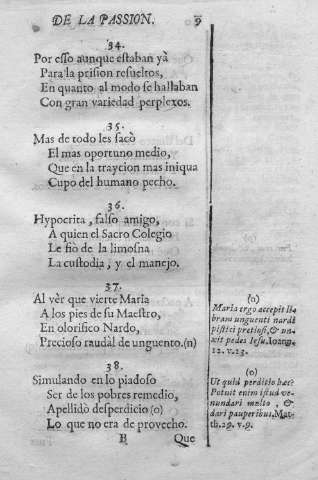 DE LA PASSION. 9
34.
Por esso aunque estaban yà
Para la prision resueltos,
En quanto al modo se hallaban
Con gran variedad perplexos.
35.
Mas de todo les sacò
El mas oportuno medio,
Que en la traycion mas iniqua
Cupo del humano pecho.
36.
Hypocrita, falso amigo,
A quien el Sacro Colegio
Le fiò de la limosna
La custodia, y el manejo.
37.
Al vèr que vierte Maria
A los pies de su Maestro,
En olorifico Nardo,
Precioso raudal de unguento.(n)
38.
Simulando en lo piadoso
Ser de los pobres remedio,
Apellidò desperdicio (o)
Lo que no era de provecho.
B Que
(n)
Maria ergo accepit li-
bram unguenti nardi
pistici pretiosi, & un-
xit pedes Iesu. Ioan.
12. v.23.
(o)
Ut quid perditio hæc?
Potuit enim istud ve-
nundari multo, &
dari pauperibus. Mat-
th.29. v.9.